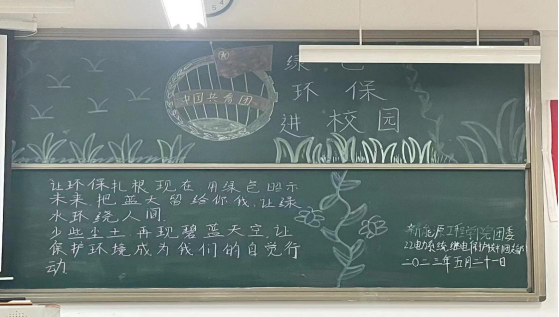 绿色
环保
进校园
中国共青团
让环保扎根现在，用绿色昭示
未来，把蓝天留给你我，让绿
水环绕人间
少些尘土，再现碧蓝天空，让
保护环境成为我们的自觉行
动
新能源工程学院团委
22电力系统继电保护
二〇二三年五月二十一日